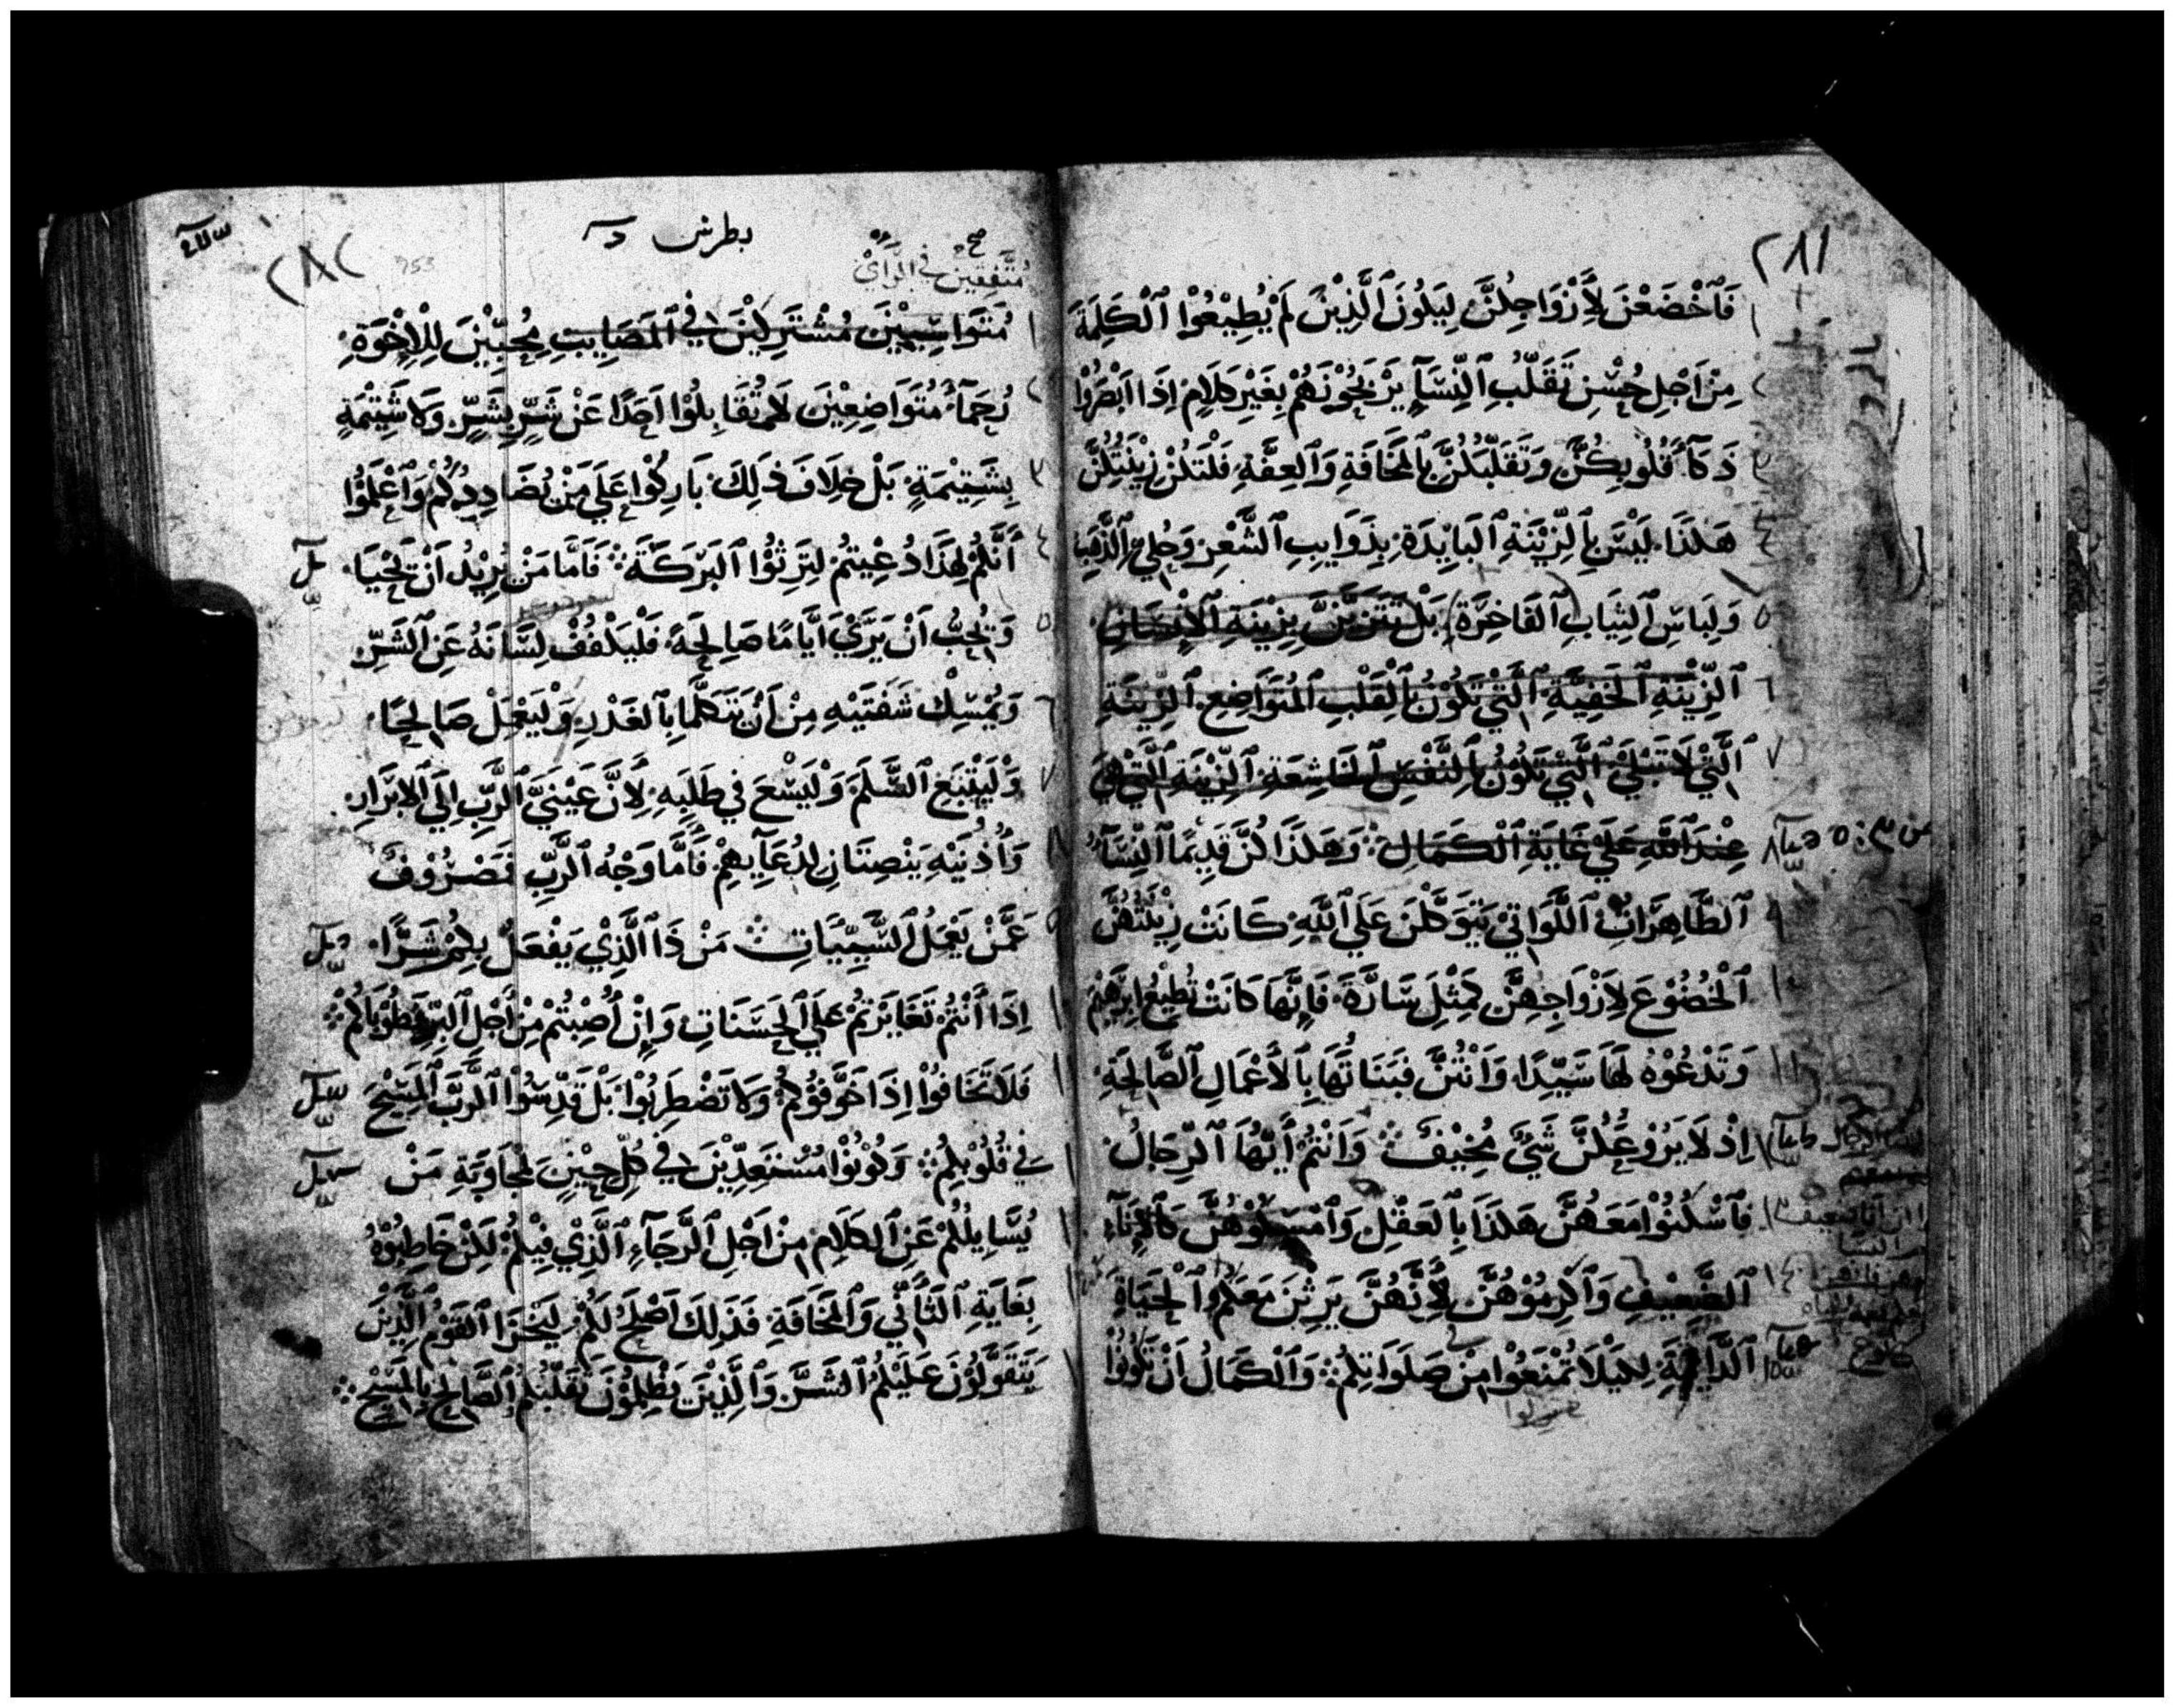 ٢٨١
فَٱخْضَعْنَ لِأَزْوَاجِكُنَّ لِيَكُونَ ٱلَّذِيْنَ لَمْ يُطِيْعُوْا ٱلْكَلِمَةَ
مِنْ اَجْلِ حُسْنِ تَقَلُّبِ ٱلنِّسَآءِ يَرْبَحُوْنَهُمْ بِغَيْرِ كَلَامٍ اِذَا اَبْصَرُوْا
ذَكَآءَ قُلُوبِكُنَّ وَتَقَلُّبَكُنَّ بِٱلْمَخَافَةِ وَٱلْعِفَّةِ فَلْتَكُنْ زِيْنَتُكُنَّ
هَكَذَا لَيْسَ بِٱلزِّيْنَةِ ٱلْبَايِدَةِ بِذَوَايِبِ ٱلشَّعْرِ وَحُلِيِّ ٱلذَّهَبِ
وَلِبَاسِ ٱلثِّيَابِ ٱلْفَاخِرَةِ بَلْ تَتَزَيَّنَّ بِزِيْنَةِ ٱلْإِنْسَانِ
ٱلزِّيْنَةِ ٱلْخَفِيَّةِ ٱلَّتِيْ تَكُوْنُ بِٱلْقَلْبِ ٱلْمُتَوَاضِعِ ٱلزِّيْنَةِ
ٱلَّتِيْ لَا تَبْلَيْ ٱلَّتِيْ تَكُوْنُ بِٱلنَّفْسِ ٱلْخَاشِعَةِ ٱلزِّيْنَةِ ٱلَّتِيْ هِيَ
عِنْدَ ٱللَّهِ عَلَيْ غَايَةِ ٱلْكَمَالِ وَهَكَذَا كُنَّ قَدِيْمًا ٱلنِّسَآءُ
ٱلطَّاهِرَاتُ ٱللَّوَاتِيْ يَتَوَكَّلْنَ عَلَي ٱللَّهِ كَانَتْ زِيْنَتُهُنَّ
ٱلْخُضُوْعَ لِأَزْوَاجِهِنَّ كَمِثْلِ سَارَّةَ فَإِنَّهَا كَانَتْ تُطِيْعُ اِبْرَهِيْمَ
وَتَدْعُوْهُ لَهَا سَيِّدًا وَاَنْتُنَّ فَبَنَاتُهَا بِٱلْأَعْمَالِ ٱلصَّالِحَةِ
اِذْ لَا يَرُوْعُكُنَّ شَيْءٌ مُخِيْفٌ وَاَنْتُمْ أَيُّهَا ٱلرِّجَالُ
فَٱسْكُنُوْا مَعَهُنَّ هَكَذَا بِٱلْعَقْلِ وَٱمْسِكُوْهُنَّ كَٱلْإِنَآءِ
ٱلضَّعِيْفِ وَٱكْرِمُوْهُنَّ لِأَنَّهُنَّ يَرِثْنَ مَعَكُمُ ٱلْحَيَاةَ
ٱلدَّايِمَةَ لِكَيْلَا تُمْنَعُوْا مِنْ صَلَوَاتِكُمْ وَٱلْكَمَالُ اَنْ تَكُوْنُوْا
٢٨٢
بطرس
مُتَّفِقِيْنَ فِي ٱلرَّايِ
صح
مُتَوَاسِيِيْنَ مُشْتَرِكِيْنَ فِي ٱلْمَصَايِبِ مُحِبِّيْنَ لِلْإِخْوَةِ
رُحَمَآءَ مُتَوَاضِعِيْنَ لَا تُقَابِلُوْا اَحَدًا عَنْ شَرٍّ بِشَرٍّ وَلَا شَتِيْمَةٍ
بِشَتِيْمَةٍ بَلْ خِلَافَ ذَلِكَ بَارِكُوْا عَلَي مَنْ يُضَادِدُكُمْ وَٱعْلَمُوْا
أَنَّكُمْ لِهَذَا دُعِيْتُمْ لِتَرِثُوْا ٱلْبَرَكَةَ فَاَمَّا مَنْ يُرِيْدُ اَنْ يَحْيَا
وَيُحِبُّ اَنْ يَرَيْ اَيَّامًا صَالِحَةً فَلْيَكْفُفْ لِسَانَهُ عَنِ ٱلشَّرِّ
وَيُمْسِكْ شَفَتَيْهِ مِنْ اَنْ يَتَكَلَّمَا بِٱلْغَدْرِ وَلْيَعْمَلْ صَالِحًا
وَلْيَتْبَعِ ٱلسَّلَمَ وَلْيَسْعَ فِي طَلَبِهِ لِأَنَّ عَيْنَيِ ٱلرَّبِّ اِلَي ٱلْابْرَارِ
وَأُذُنَيْهِ يَنْصِتَانِ لِدُعَآيِهِمْ فَأَمَّا وَجْهُ ٱلرَّبِّ فَمَصْرُوْفٌ
عَمَّنْ يَعْمَلُ ٱلسَّيِّيَاتِ مَنْ ذَا ٱلَّذِيْ يَفْعَلُ بِكُمْ شَرًّا
اِذَا أَنْتُمْ تَغَايَرْتُمْ عَلَي ٱلْحَسَنَاتِ وَإِنْ أُصِبْتُمْ مِنْ أَجْلِ ٱلْبِرِّ فَطُوْبَاكُمْ
فَلَا تَخَافُوْا اِذَا خَوَّفُوْكُمْ وَلَا تَضْطَرِبُوْا بَلْ قَدِّسُوْا ٱلرَّبَّ ٱلْمَسِيْحَ
فِي قُلُوْبِكُمْ وَكُوْنُوْا مُسْتَعِدِّيْنَ فِي كُلِّ حِيْنٍ لِمُجَاوَبَةِ مَنْ
يُسَايِلُكُمْ عَنِ ٱلْكَلَامِ مِنْ اَجْلِ ٱلرَّجَآءِ ٱلَّذِيْ فِيْكُمْ لَكِنْ خَاطِبُوْهُ
بِغَايَةِ ٱلتَّأَنِّي وَٱلْمَخَافَةِ فَذَلِكَ اَصْلَحُ لَكُمْ لِيَخْزَا ٱلْقَوْمُ ٱلَّذِيْنَ
يَتَقَوَّلُوْنَ عَلَيْكُمُ ٱلشَّرَّ وَٱلَّذِيْنَ يَظْلِمُوْنَ تَقَلُّبَكُمُ ٱلصَّالِحَ بِٱلْمَسِيْحِ